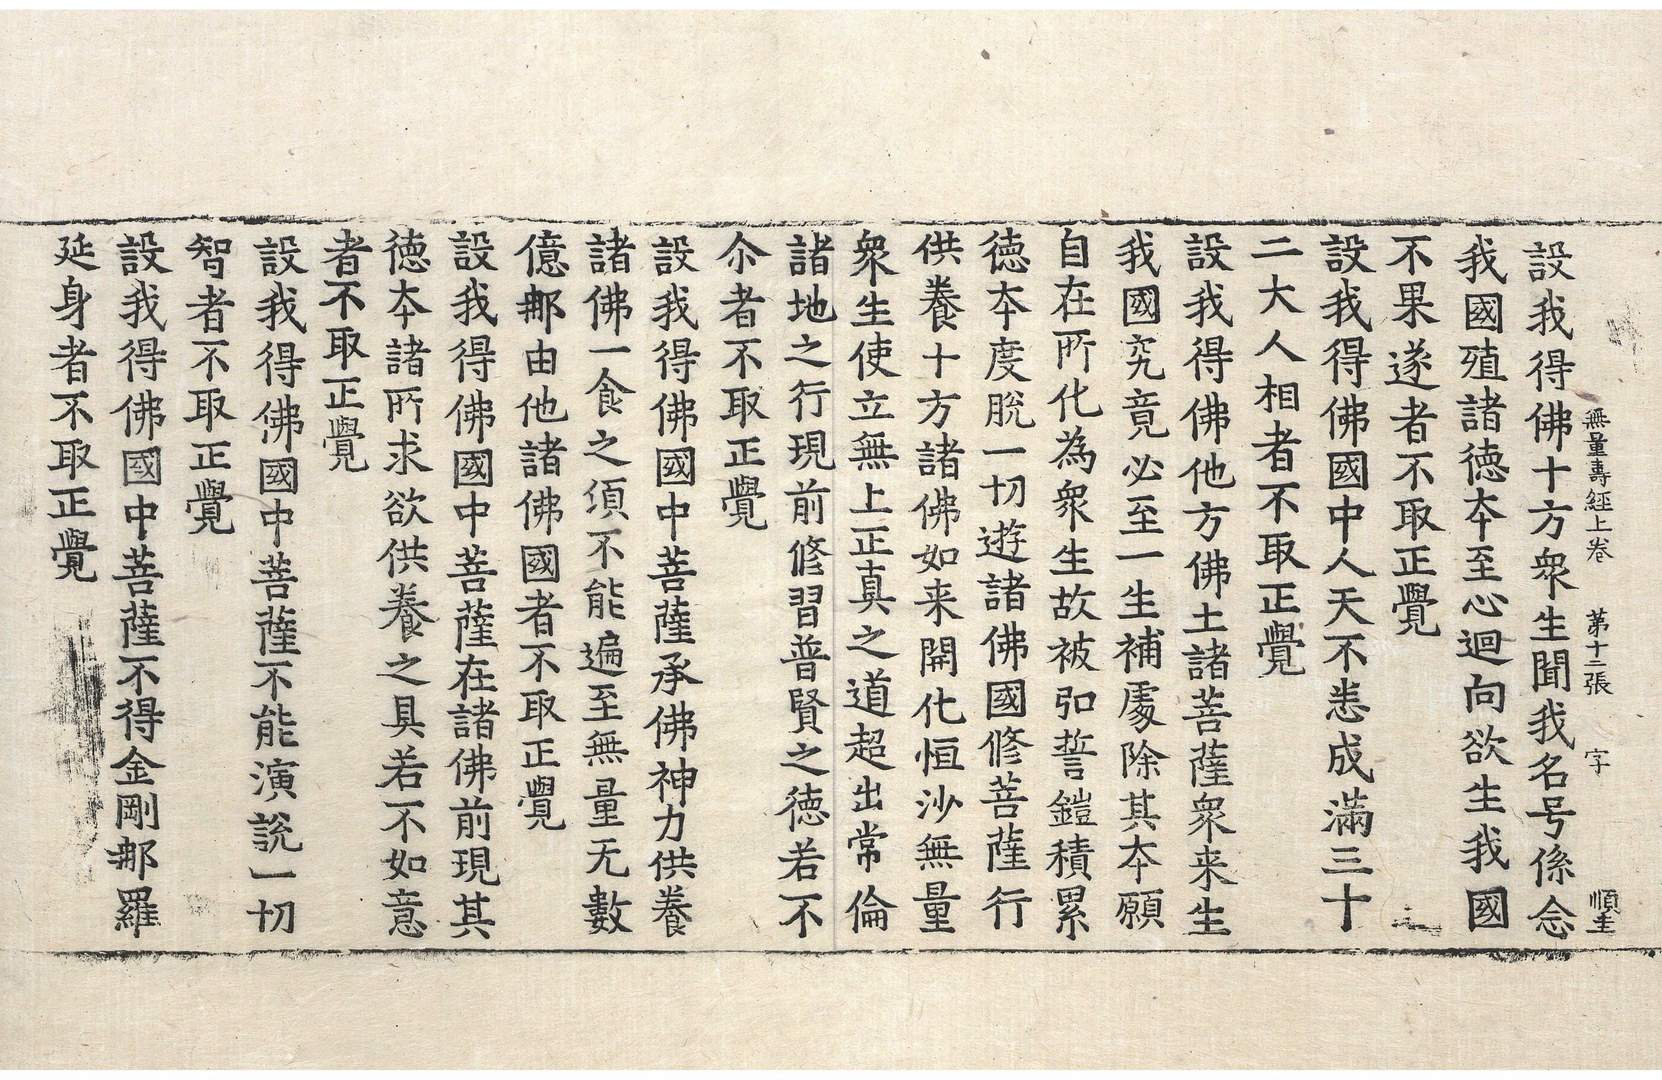 無量壽經上卷 第十二張 字 順生
設我得佛十方衆生聞我名号係念
我國殖諸德夲至心迴向欲生我國
不果遂者不取正覺
設我得佛國中人天不悉成滿三十
二大人相者不取正覺
設我得佛他方佛土諸菩薩衆来生
我國究竟必至一生補處除其夲願
自在所化為衆生故被弘誓鎧積累
德夲度脫一切遊諸佛國修菩薩行
供養十方諸佛如来開化恒沙無量
衆生使立無上正真之道超出常倫
諸地之行現前修習普賢之德若不
尒者不取正覺
設我得佛國中菩薩承佛神力供養
諸佛一食之須不能遍至無量无數
億那由他諸佛國者不取正覺
設我得佛國中菩薩在諸佛前現其
德夲諸所求欲供養之具若不如意
者不取正覺
設我得佛國中菩薩不能演說一切
智者不取正覺
設我得佛國中菩薩不得金剛那羅
延身者不取正覺